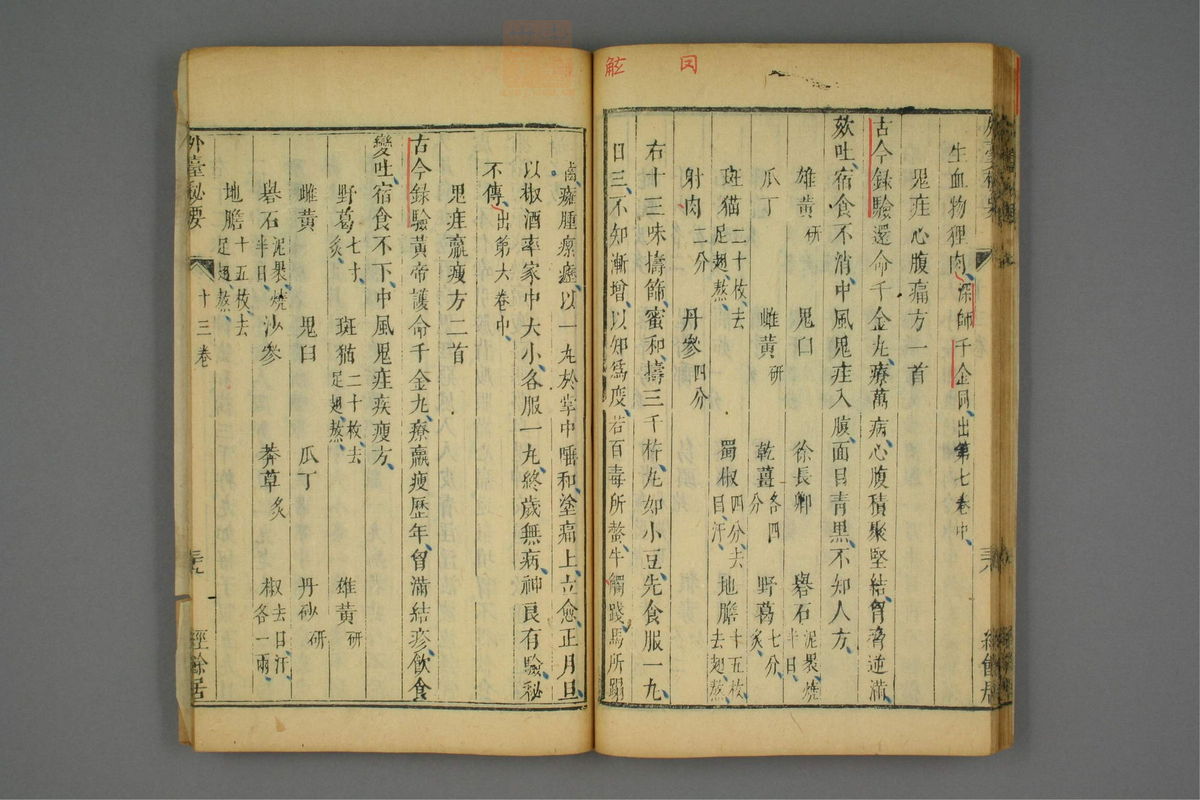 觝 囙
生血物狸肉深師千金同出第七卷中
鬼疰心腹痛方一首
古今録驗還命千金丸療萬病心腹積聚堅結胷脅逆滿
欬吐宿食不消中風鬼疰入腹面目青黑不知人方
雄黄研 鬼臼 徐長卿 礜石泥裹燒半日
瓜丁 雌黄研 乾薑各四分 野葛七分炙
斑猫二十枚去足翅熬 蜀椒四分去目汗 地膽十五枚去翅熬
射肉二分 丹參四分
右十三味擣篩蜜和擣三千杵丸如小豆先食服一丸
日三不知漸增以知爲度若百毒所螫牛觸踐馬所蹋
癰腫瘰癧以一丸於掌中唾和塗痛上立愈正月旦
以椒酒率家中大小各服一丸終歳無病神良有驗秘
不傳出第六卷中
鬼疰羸瘦方二首
古今録驗黄帝護命千金丸療羸瘦歷年胷滿結疹飲食
變吐宿食不下中風鬼疰疾瘦方
野葛七寸炙 斑猫二十枚去足翅熬 雄黄研
雌黄 鬼臼 瓜丁 丹砂研
礜石泥裹燒半日 沙參 莽草炙 椒去目汗各一兩
地膽十五枚去足翅熬
外臺秘要 十三卷 三十九 經餘居